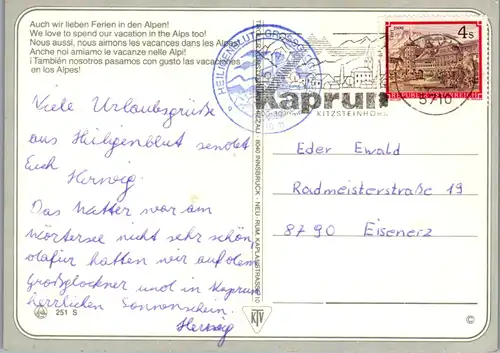 Auch wir lieben Ferien in den Alpen!
We love to spend our vacation in the Alps too!
Nous aussi, nous aimons les vacances dans les Alpes!
Anche noi amiamo le vacanze nelle Alpi!
¡También nosotros pasamos con gusto las vacaciones
en los Alpes!
Viele Urlaubsgrüße
aus Heiligenblut sendet
Euch
Herwig.
Das Wetter war am
Wörtersee nicht sehr schön,
dafür hatten wir auf dem
Großglockner und in Kaprun
herrlichen Sonnenschein.
Herwig
251 S
HEILIGENBLUT
Kaprun
KITZSTEINHORN
5710
4s
STAMS
REPUBLIK ÖSTERREICH
Eder Ewald
Radmeisterstraße 19
8790 Eisenerz
6040 INNSBRUCK - NEU-RUM, KAPLANSTRASSE
KTV
©